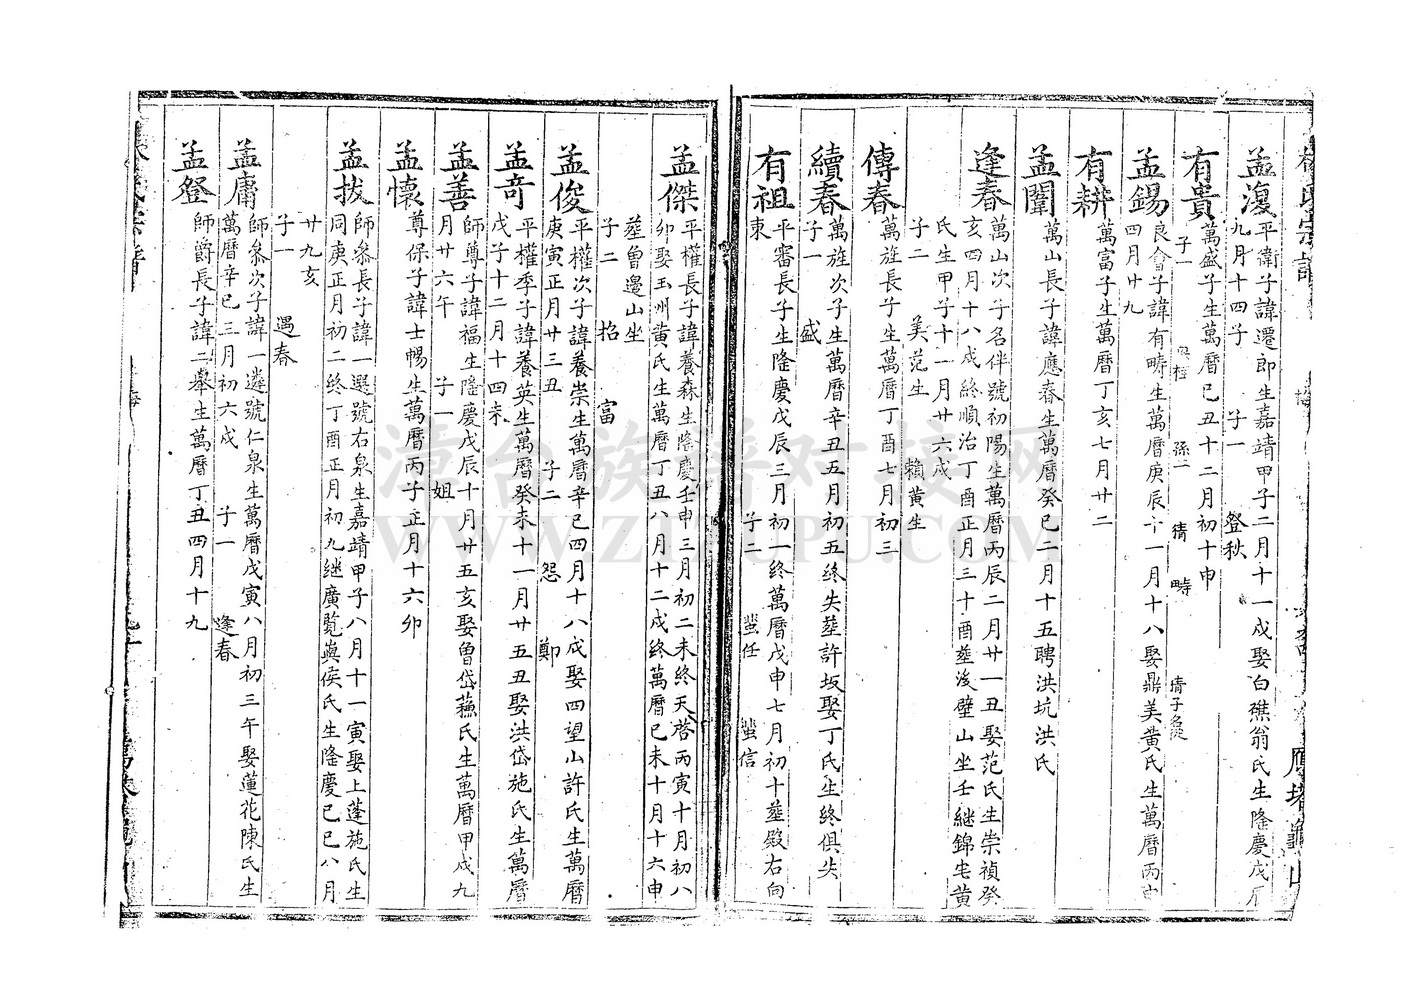 孟復 平衛子諱遷即生嘉靖甲子二月十一戌娶白礁翁氏生隆慶戊辰
九月十四子 子一 登秋
有貴 萬盛子生萬曆己丑十二月初十申
子一 孫二 猜 時
孟錫 良會子諱有疇生萬曆庚辰十一月十八娶鼎美黃氏生萬曆丙申
四月廿九
有耕 萬富子生萬曆丁亥七月廿二
孟闈 萬山長子諱應春生萬曆癸巳二月十五聘洪坑洪氏
逢春 萬山次子名伴號初陽生萬曆丙辰二月廿一丑娶范氏生崇禎癸
亥四月十八戌終順治丁酉正月三十酉塟後壁山坐壬継錦宅黃
氏生甲子十一月廿六戌
子二 美范生 賴黃生
傳春 萬旌長子生萬曆丁酉七月初三
續春 萬旌次子生萬曆辛丑五月初五終失塟許坂娶丁氏生終俱失
子一 盛
有祖 平審長子生隆慶戊辰三月初一終萬曆戊申七月初十塟殿右向
東 子二 蜚任 蜚信
孟傑 平權長子諱養森生隆慶壬申三月初二未終天啓丙寅十月初八
卯娶玉州黃氏生萬曆丁丑八月十二戌終萬曆己未十月十六申
塟曾邊山坐
子二 招 富
孟俊 平權次子諱養崇生萬曆辛巳四月十八戌娶四望山許氏生萬曆
庚寅正月廿三丑 子二 怨 鄭
孟奇 平權季子諱養英生萬曆癸未十一月廿五丑娶洪岱施氏生萬曆
戊子十二月十四未
孟善 師尊子諱福生隆慶戊辰十月廿五亥娶曾岱蘓氏生萬曆甲戌九
月廿六午 子一 姐
孟懷 尊保子諱士暢生萬曆丙子正月十六卯
孟拔 師叅長子諱一選號右泉生嘉靖甲子八月十一寅娶上蓬施氏生
同庚正月初二終丁酉正月初九継廣覽嶴侯氏生隆慶己巳八月
廿九亥
子一 遇春
孟庸 師叅次子諱一遴號仁泉生萬曆戊寅八月初三午娶蓮花陳氏生
萬曆辛巳三月初六戌 子一 逢春
孟登 師爵長子諱二舉生萬曆丁丑四月十九
漳台族譜对接网
WWW.ZTZUPU.COM